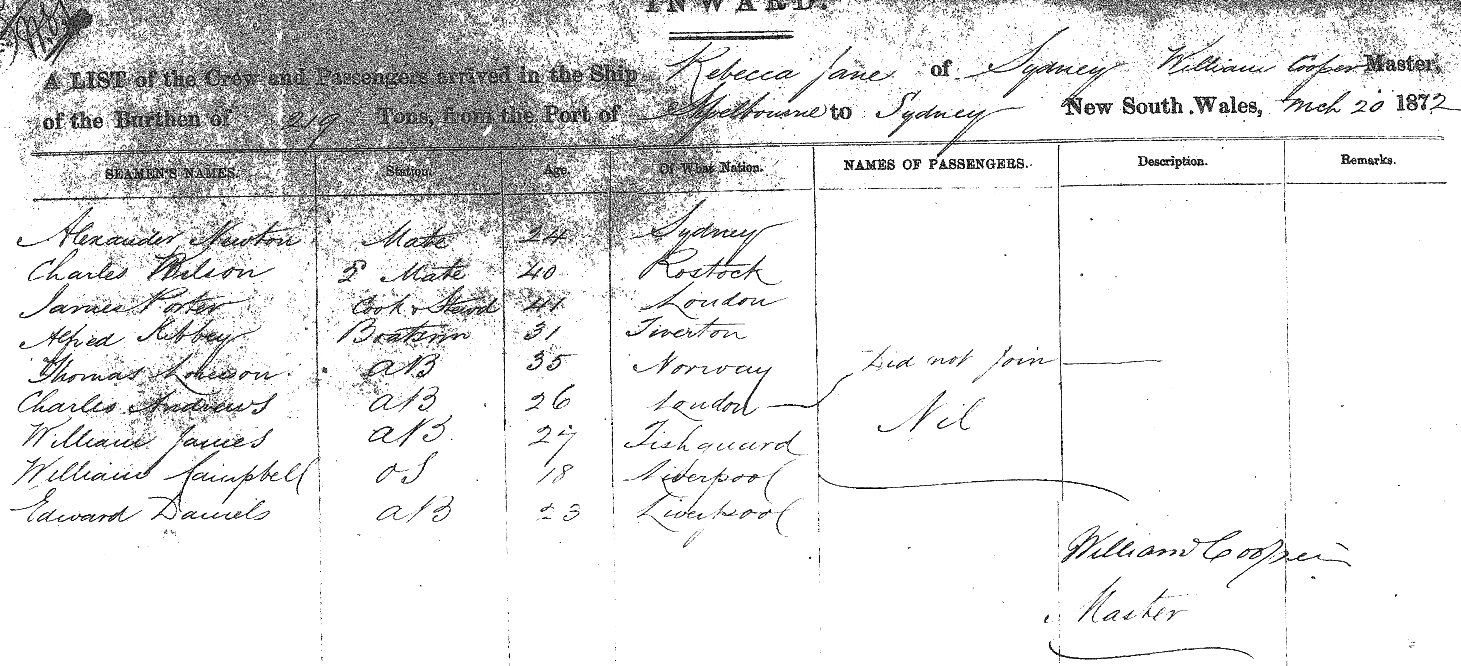 INWARD.
A LIST of the Crew and Passengers arrived in the Ship Rebecca Jane of Sydney William Cooper Master,
of the Burthen of 219 Tons, from the Port of Melbourne to Sydney New South Wales, Mch 20 1872
SEAMEN'S NAMES. Station. Age. Of What Nation. NAMES OF PASSENGERS. Description. Remarks.
Alexander Newton Mate 24 Sydney
Charles Wilson 2 Mate 40 Rostock
James Porter Cook & Stewd 41 London
Alfred Kibbey Boatswn 31 Tiverton
Thomas AB 35 Norway Did not Join
Charles Andrews AB 26 London
William James AB 27 Fishguard Nil
William Campbell OS 18 Liverpool
Edward Daniels AB 23 Liverpool
William Cooper
Master